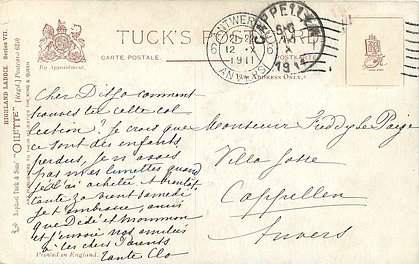 TUCK'S POST CARD
CARTE POSTALE.
By Appointment.
(FOR ADDRESS ONLY.)
ANTWERPEN
12 X
1911
ANVERS
CAPPELLEN
ENGLAND LADDIE Series VII.
Raphael Tuck & Sons' "OILETTE" [Regd.] Postcard 6240
Cher Did comment
trouves tu cette col
lection? Je crois que
ce sont des enfants
perdus, je n'avais
pas mes lunettes quand
je l'ai acheté. A bientôt,
tante
Je t'embrasse, ainsi
que Dédé et Mommon
et j'envoie nos amitiés
à tes chers Parents
Tante Clo
Monsieur Freddy Le Paige
Villa Josse
Cappellen
Anvers
Printed in England.